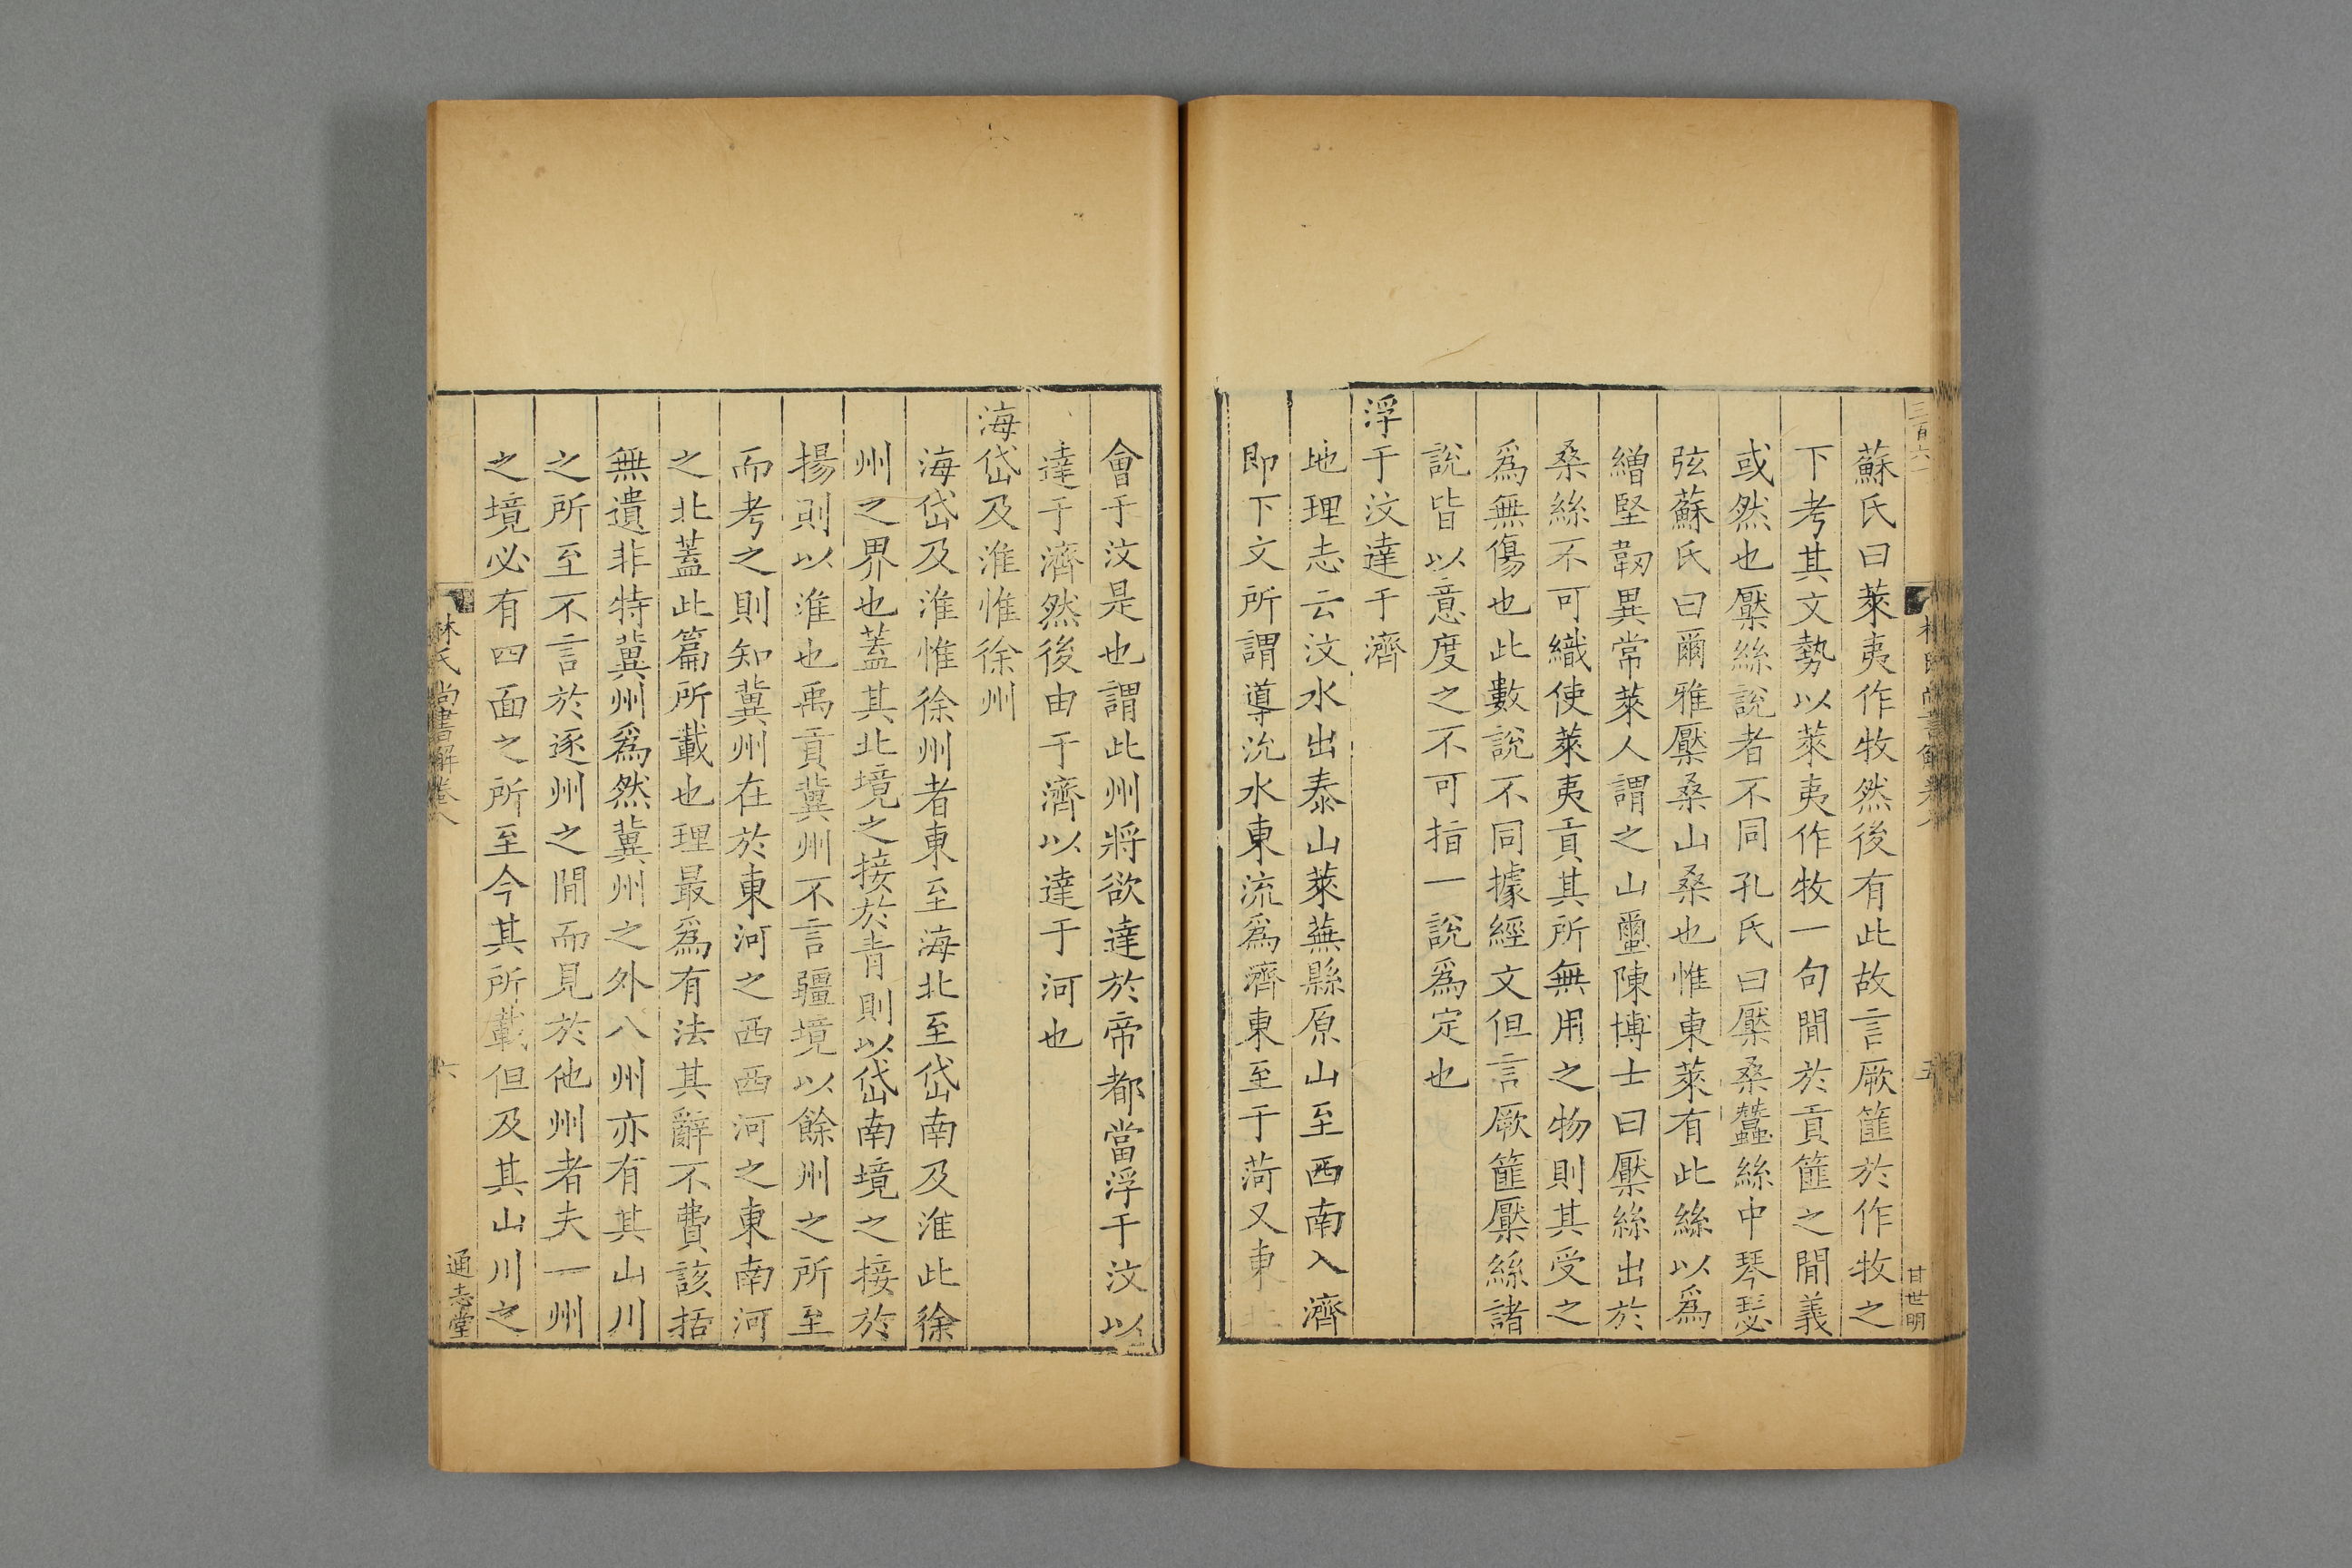 三百六
蘇氏曰萊夷作牧然後有此故言厥篚於作牧之
下考其文勢以萊夷作牧一句間於貢篚之間義
或然也檿絲說者不同孔氏曰檿桑蠶絲中琴瑟
弦蘇氏曰爾雅檿桑山桑也惟東萊有此絲以爲
繒堅韌異常萊人謂之山蠒陳博士曰檿絲出於
桑絲不可織使萊夷貢其所無用之物則其受之
爲無傷也此數說不同據經文但言厥篚檿絲諸
說皆以意度之不可指一說爲定也
浮于汶達于濟
地理志云汶水出泰山萊蕪縣原山至西南入濟
即下文所謂導沇水東流爲濟東至于菏又東北
五
甘世明
會于汶是也謂此州將欲達於帝都當浮于汶以
達于濟然後由于濟以達于河也
海岱及淮惟徐州
海岱及淮惟徐州者東至海北至岱南及淮此徐
州之界也蓋其北境之接於青則以岱南境之接於
揚則以淮也禹貢冀州不言疆境以餘州之所至
而考之則知冀州在於東河之西西河之東南河
之北蓋此篇所載也理最爲有法其辭不費該括
無遺非特冀州爲然冀州之外八州亦有其山川
之所至不言於逐州之間而見於他州者夫一州
之境必有四面之所至今其所載但及其山川之
林氏尚書解卷八
六
通志堂